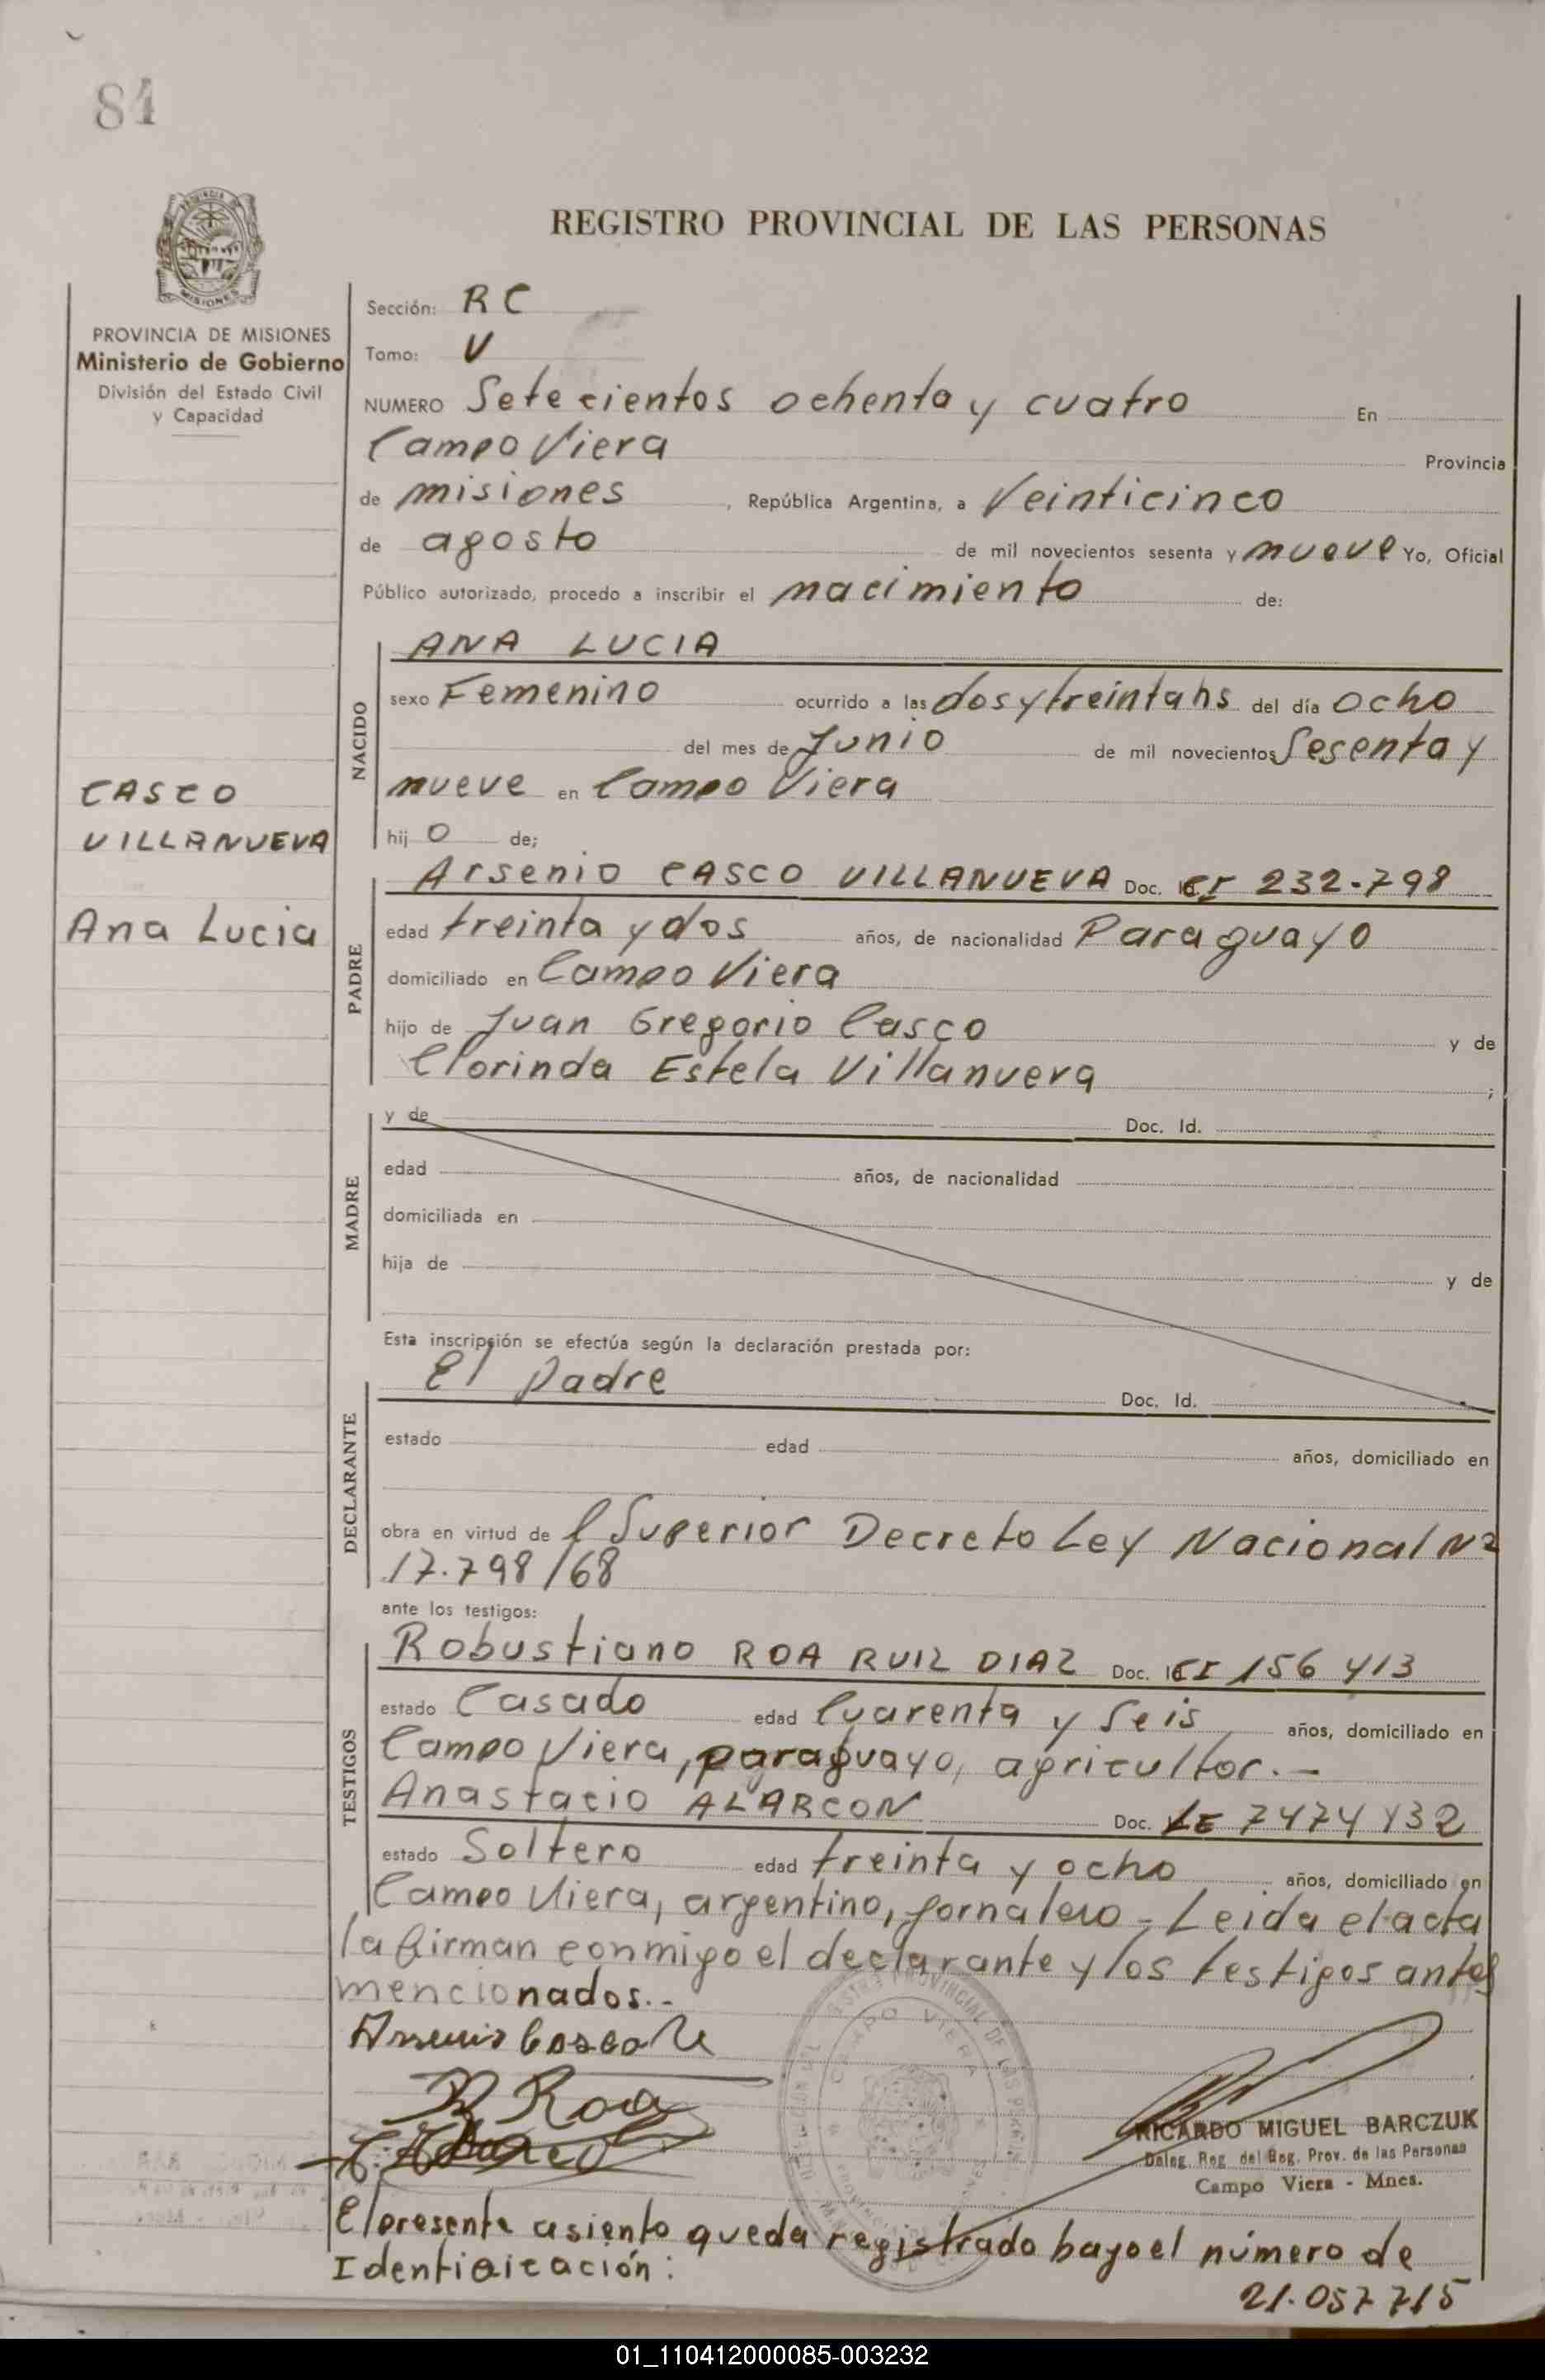 84
REGISTRO PROVINCIAL DE LAS PERSONAS
PROVINCIA DE MISIONES
Ministerio de Gobierno
División del Estado Civil
y Capacidad
Sección: RC
Tomo: V
NUMERO Setecientos ochenta y cuatro En
Campo Viera Provincia
de misiones, República Argentina, a Veinticinco
de agosto de mil novecientos sesenta y nueve Yo, Oficial
Público autorizado, procedo a inscribir el nacimiento de:
NACIDO
ANA LUCIA
sexo Femenino ocurrido a las dos y treinta hs del día ocho
del mes de Junio de mil novecientos Sesenta y
nueve en Campo Viera
hijo de;
CASCO
VILLANUEVA
Ana Lucia
PADRE
Arsenio CASCO VILLANUEVA Doc. CI 232.798
edad treinta y dos años, de nacionalidad Paraguayo
domiciliado en Campo Viera
hijo de Juan Gregorio Casco y de
Clorinda Estela Villanueva ;
MADRE
y de Doc. Id.
edad años, de nacionalidad
domiciliada en
hija de y de
Esta inscripción se efectúa según la declaración prestada por:
DECLARANTE
El padre Doc. Id.
estado edad años, domiciliado en
obra en virtud de l Superior Decreto Ley Nacional Nº
17.798/68
ante los testigos:
TESTIGOS
Robustiano ROA RUIZ DIAZ Doc. CI 156413
estado Casado edad Cuarenta y Seis años, domiciliado en
Campo Viera, paraguayo, agricultor.-
Anastacio ALARCON Doc. LE 7474432
estado Soltero edad treinta y ocho años, domiciliado en
Campo Viera, argentino, jornalero - Leida el acta
la firman conmigo el declarante y los testigos antes
mencionados.-
Arsenio Casco V
R Roa
CAMPO VIERA
RICARDO MIGUEL BARCZUK
Deleg. Reg. del Reg. Prov. de las Personas
Campo Viera - Mnes.
El presente asiento queda registrado bajo el número de
Identificación:
21.057.715
01_110412000085-003232